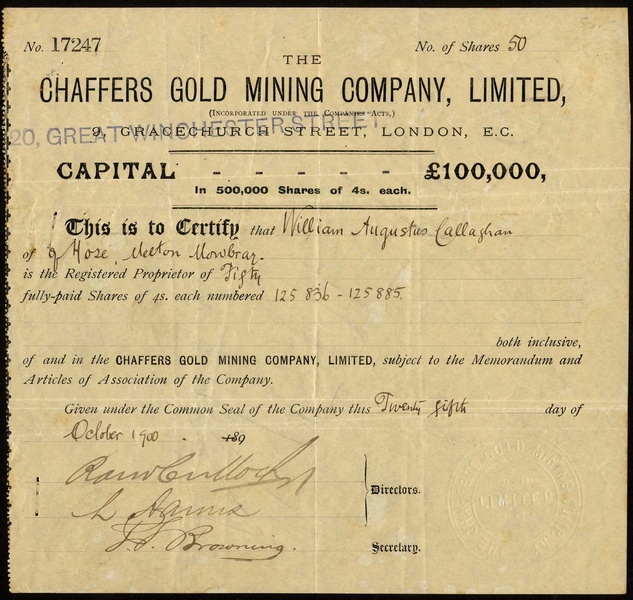 No. 17247 No. of Shares 50
THE
CHAFFERS GOLD MINING COMPANY, LIMITED,
(Incorporated under the Companies Acts,)
20, GREAT WINCHESTER STREET
9, GRACECHURCH STREET, LONDON, E.C.
CAPITAL - - - - - £100,000,
In 500,000 Shares of 4s. each.
This is to Certify that William Augustus Callaghan
of Hose, Melton Mowbray.
is the Registered Proprietor of Fifty
fully-paid Shares of 4s. each numbered 125836 - 125885.
both inclusive,
of and in the CHAFFERS GOLD MINING COMPANY, LIMITED, subject to the Memorandum and
Articles of Association of the Company.
Given under the Common Seal of the Company this Twenty fifth day of
October 1900. 189
Directors.
Browning. Secretary.
GOLD MINING
LIMITED